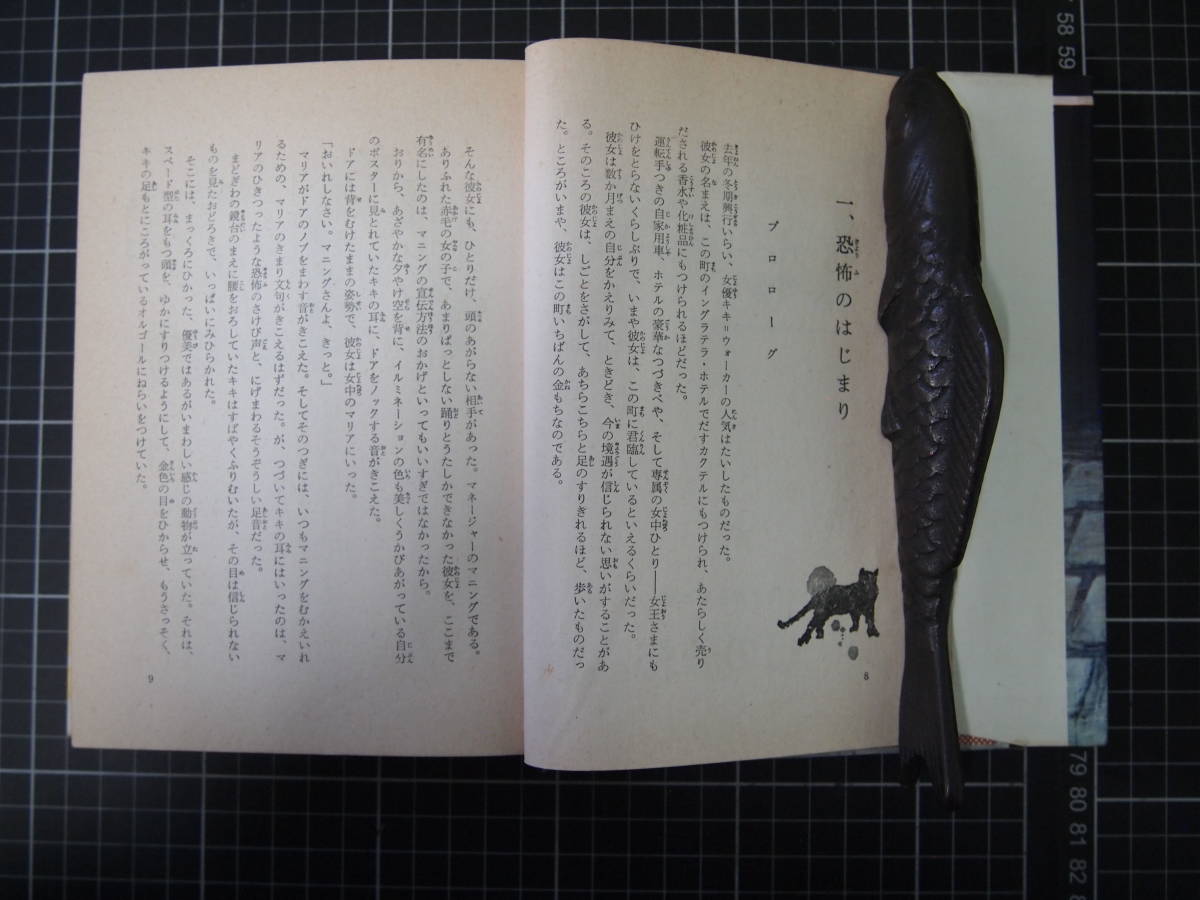 一、恐怖のはじまり
プロローグ
去年の冬期興行いらい、女優キキ=ウォーカーの人気はたいしたものだった。
彼女の名まえは、この町のイングラテラ・ホテルでだすカクテルにもつけられ、あたらしく売り
だされる香水や化粧品にもつけられるほどだった。
運転手つきの自家用車、ホテルの豪華なつづきべや、そして専属の女中ひとり――女王さまにも
ひけをとらないくらしぶりで、いまや彼女は、この町に君臨しているといえるくらいだった。
彼女は数か月まえの自分をかえりみて、ときどき、今の境遇が信じられない思いがすることがあ
る。そのころの彼女は、しごとをさがして、あちらこちらと足のすりきれるほど、歩いたものだっ
た。ところがいまや、彼女はこの町いちばんの金もちなのである。
8
そんな彼女にも、ひとりだけ、頭のあがらない相手があった。マネージャーのマニングである。
ありふれた赤毛の女の子で、あまりぱっとしない踊りとうたしかできなかった彼女を、ここまで
有名にしたのは、マニングの宣伝方法のおかげといってもいいすぎではなかったから。
おりから、あざやかな夕やけ空を背に、イルミネーションの色も美しくうかびあがっている自分
のポスターに見とれていたキキの耳に、ドアをノックする音がきこえた。
ドアには背をむけたままの姿勢で、彼女は女中のマリアにいった。
「おいれしなさい。マニングさんよ、きっと。」
マリアがドアのノブをまわす音がきこえた。そしてそのつぎには、いつもマニングをむかえいれ
るための、マリアのきまり文句がきこえるはずだった。が、つづいてキキの耳にはいったのは、マ
リアのひきつったような恐怖のさけび声と、にげまわるそうぞうしい足音だった。
まどぎわの鏡台のまえに腰をおろしていたキキはすばやくふりむいたが、その目は信じられない
ものを見たおどろきで、いっぱいにみひらかれた。
そこには、まっくろにひかった、優美ではあるがいまわしい感じの動物が立っていた。それは、
スペード型の耳をもつ頭を、ゆかにすりつけるようにして、金色の目をひからせ、もうさっそく、
キキの足もとにころがっているオルゴールにねらいをつけていた。
9
58 59
79 80 81 82